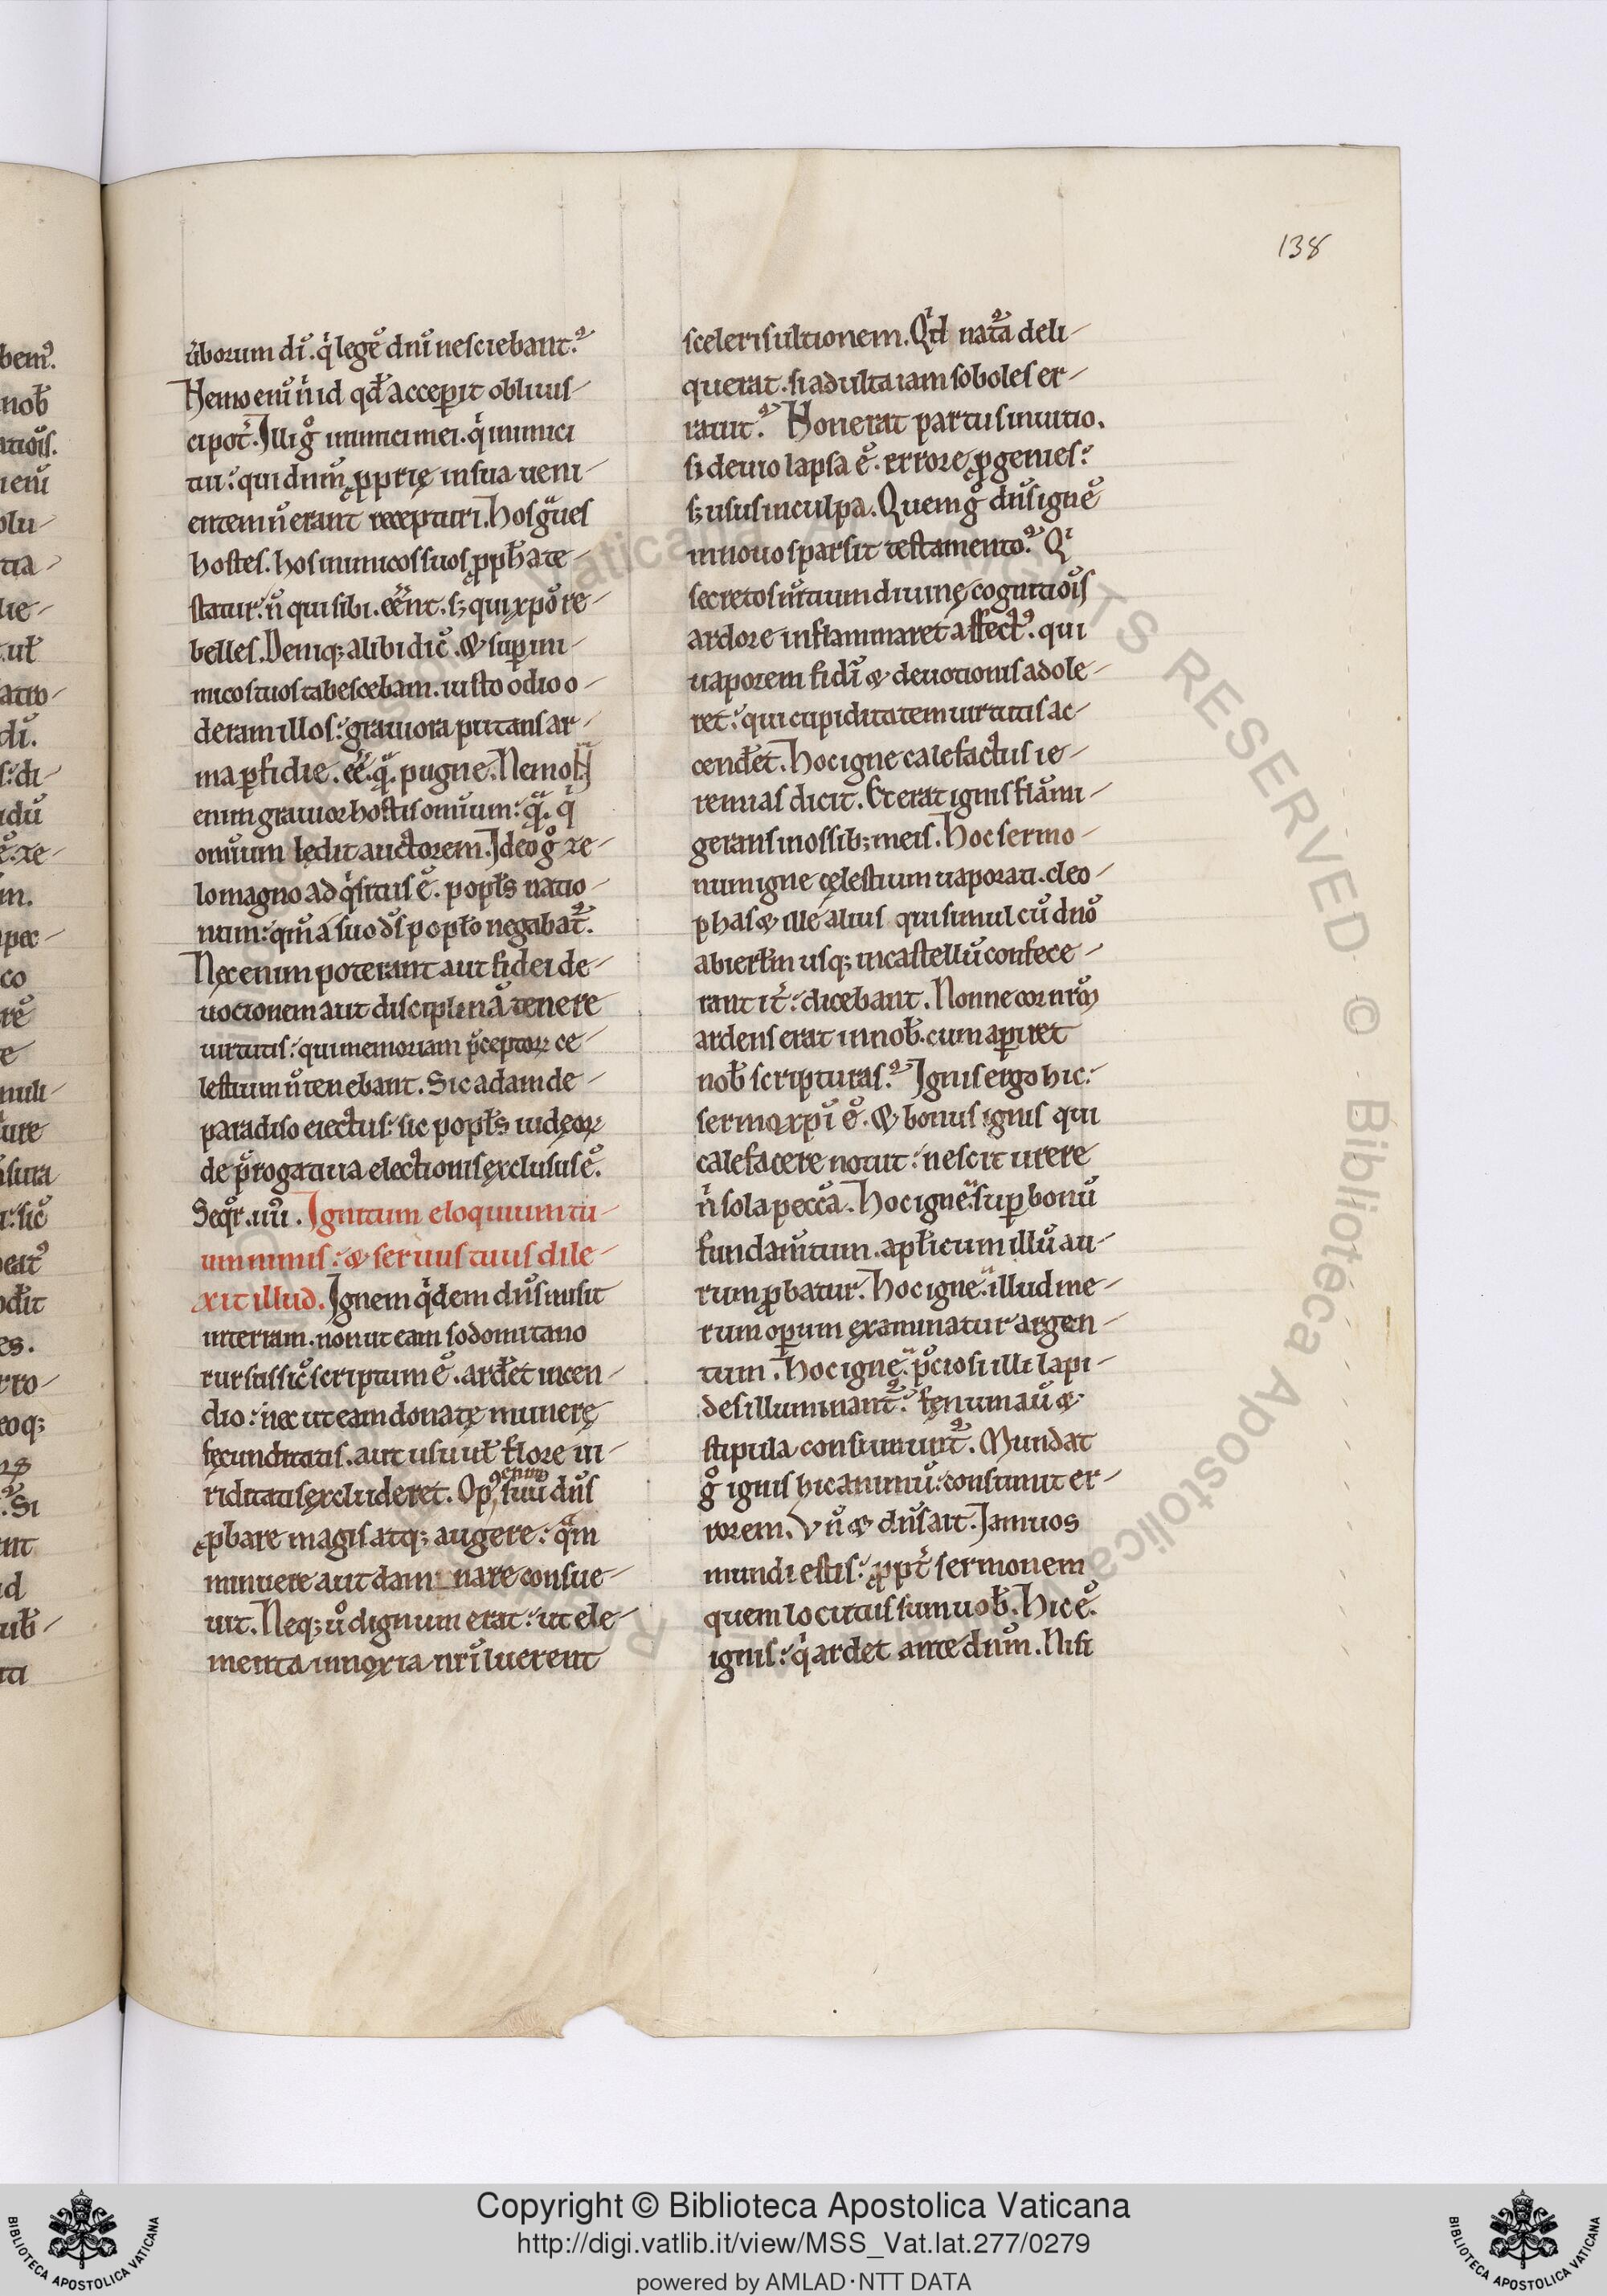 138
ũborum di̅. qͥ lege̅ dn̅i nesciebant.
Nemo eni̅ n̅ id qd̅ accepit obliuis-
ci pot̅. Illi gͦ inimici mei. qͥ inimici
tui: qui dn̅m ꝓprię in sua ueni-
entem n̅ erant recepturi. Hos
hostes. hos inimicos suos ꝓph̅a te-
statur: n̅ qui sibi. ee̅nt. sꝫ qui xp̅o re-
belles. Deniqꝫ alibi dic̅. & sup ini-
micos tuos tabescebam. iusto odio o-
deram illos: grauiora putans ar-
ma ꝑfidie. ee̅. qͣ̅. pugne. Nemo
enim grauior hostis omium: qͣ̅. qͥ
omium lędit auctorem. Ideo gͦ ze-
lo magno adqͥsitus e̅. popl̅s natio-
num: qm̅ a suo ds̅ popl̅o negabat᷑.
Nec enim poterant aut fidei de-
uotionem aut disciplina̅ tenere
uirtutis: qui memoriam p̅ceptoꝝ ce-
lestium n̅ tenebant. Sic adam de
paradiso eiectus: sic popl̅s iudęoꝝ
de p̅rogatiua electionis exclusus e̅.
Seqr̅. uu̅. Ignitum eloquium tu-
um nimis: & seruus tuus dile-
xit illud. Ignem qͥdem dn̅s misit
in terram. non ut eam sodomitano
rursus sic̅ scriptum e̅. ard̅et incen-
dio: nec ut eam donatę munere
fęcunditatis. aut usu ul̅ flore ui-
riditatis excluderet. Opꝰ enim suu̅ dn̅s
ꝓbare magis atqꝫ augere: qͣm
minuere aut dam nare consue-
uit. Neqꝫ u̅o dignum erat: ut ele-
menta innoxia nr̅i luerent
sceleris ultionem. Qͥd nat̅a deli-
querat. si adulta iam soboles er-
rauit. Non erat partus in uitio.
si deuio lapsa e̅. errore ꝓgenies:
sꝫ usus in culpa. Quem gͦ dn̅s igne̅
in nouo sparsit testamento.
secretos urtium diuinę cognitiois
ardore inflammaret affectꝰ. qui
uaporem fidi̅ & deuotionis adole-
ret: qui cupiditatem uirtutis ac-
cend̅et. Hoc igne calefactus ie-
remias dicit. Et erat ignis fla̅mi-
gerans in ossibꝫ meis. Hoc sermo-
num igne cęlestium uaporati. cleo-
phas & ille alius qui simul cu̅ dn̅o
abier̅t in usqꝫ in castellu̅ confece-
rant it̅: dicebant. Nonne cor nr̅m
ardens erat in nob̅. cum aperiret
nob̅ scripturas. Ignis ergo hic:
sermo xp̅i e̅. & bonus ignis qui
calefacere nouit: nescit urere
n̅ sola pecca̅. Hoc igne: sup bonu̅
fundam̅tum. apl̅icum illu̅ au-
rum ꝓbatur. Hoc igne: illud me-
rum operum examinatur argen-
tum. Hoc igne: p̅ciosi illi lapi-
des illuminant᷑: fęnum au̅ &
stipula consumunt᷑. Mundat
gͦ ignis hic animu̅: consumit er-
rorem. Vn̅ & dn̅s ait. Iam uos
mundi estis: ꝓpt̅ sermonem
quem locutus sum uob̅. Hic e̅.
ignis: qͥ ardet ante dn̅m. Nisi
Copyright © Biblioteca Apostolica Vaticana
http://digi.vatlib.it/view/MSS_Vat.lat.277/0279
powered by AMLAD·NTT DATA